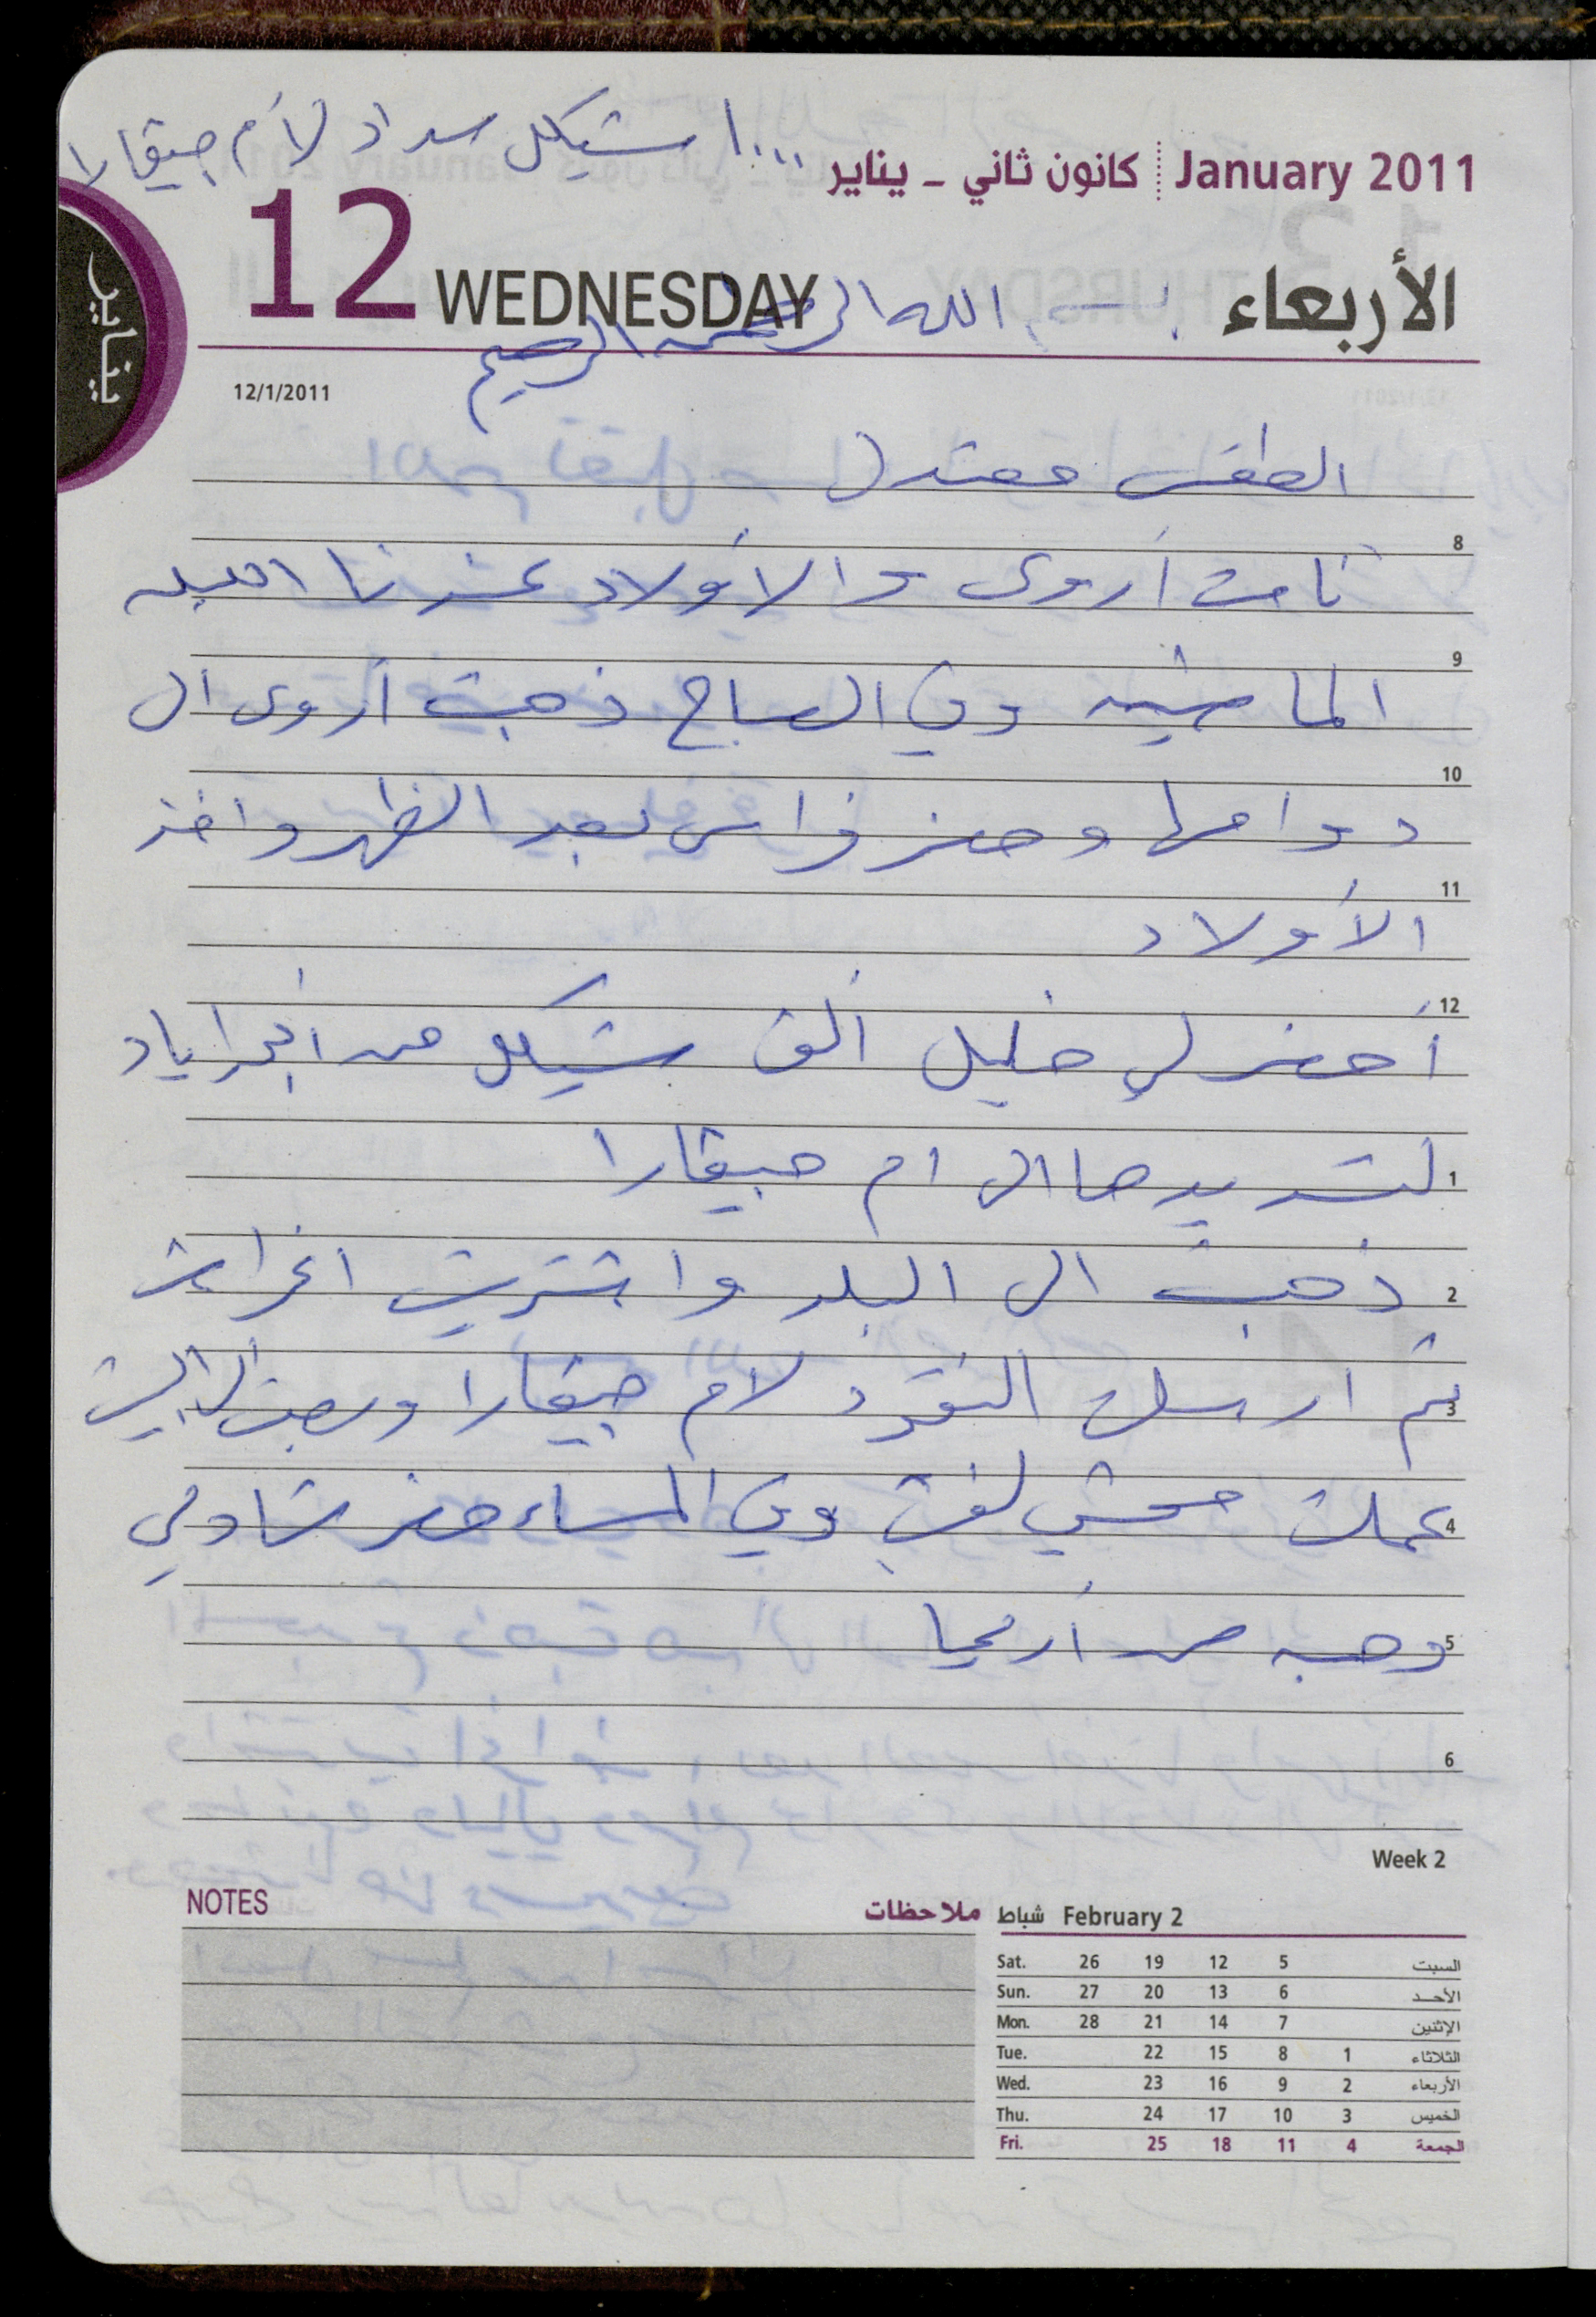 ١٠٠٠ شيكل سداد لأم جيقارا
January 2011 كانون ثاني - يناير
12 WEDNESDAY الأربعاء
بسم الله الرحمن الرحيم
يناير
12/1/2011
الطقس معتدل
8
نامت أروى والأولاد عندنا الليله
9
الماضيه وفي الصباح ذهبت أروى الى
10
دوامها وحضر فراس بعد الظهر واخذ
11
الأولاد
12
أحضر لي خليل ألف شيكل من
لتسديدها الى ام جيقارا
1
ذهبت الى البلد واشتريت اغراض
2
ثم ارسلت النقود لام جيقارا ورجعت الى البيت
3
عملت محشي لفت وفي المساء حضر شادي
4
وهبه من أريحا
5
6
Week 2
NOTES ملاحظات
شباط February 2
Sat. 26 19 12 5 السبت
Sun. 27 20 13 6 الأحد
Mon. 28 21 14 7 الإثنين
Tue. 22 15 8 1 الثلاثاء
Wed. 23 16 9 2 الأربعاء
Thu. 24 17 10 3 الخميس
Fri. 25 18 11 4 الجمعة